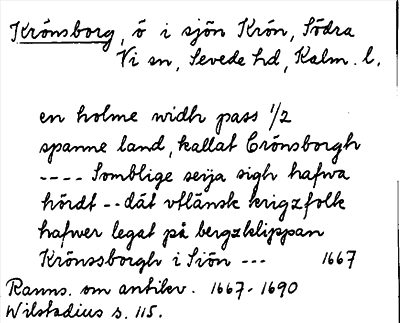 Krönsborg, ö i sjön Krön, Södra
Vi sn, Sevede hd, Kalm. l.
en holme widh pass 1/2
spanne land, kallat Crönsborgh
---- Somblige seija sigh hafwa
hördt -- dåt vtlänsk krigzfolk
hafwer legat på bergzklippan
Krönssborgh i Siön --- 1667
Ranns. om antikv. 1667-1690
Wilstadius s. 115.